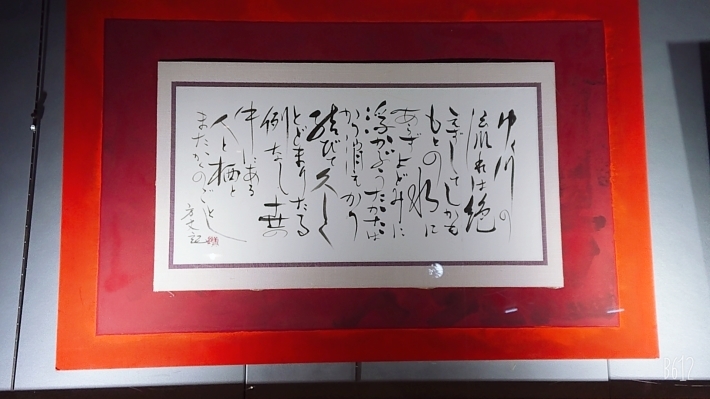 ゆく川の
流れは絶
えずしてしかも
もとの水に
あらずよどみに
浮かぶうたかたは
かつ消えかつ
結びて久しく
とどまりたる
例なし世の
中にある
人と栖と
またかくのごとし
方丈記
B612